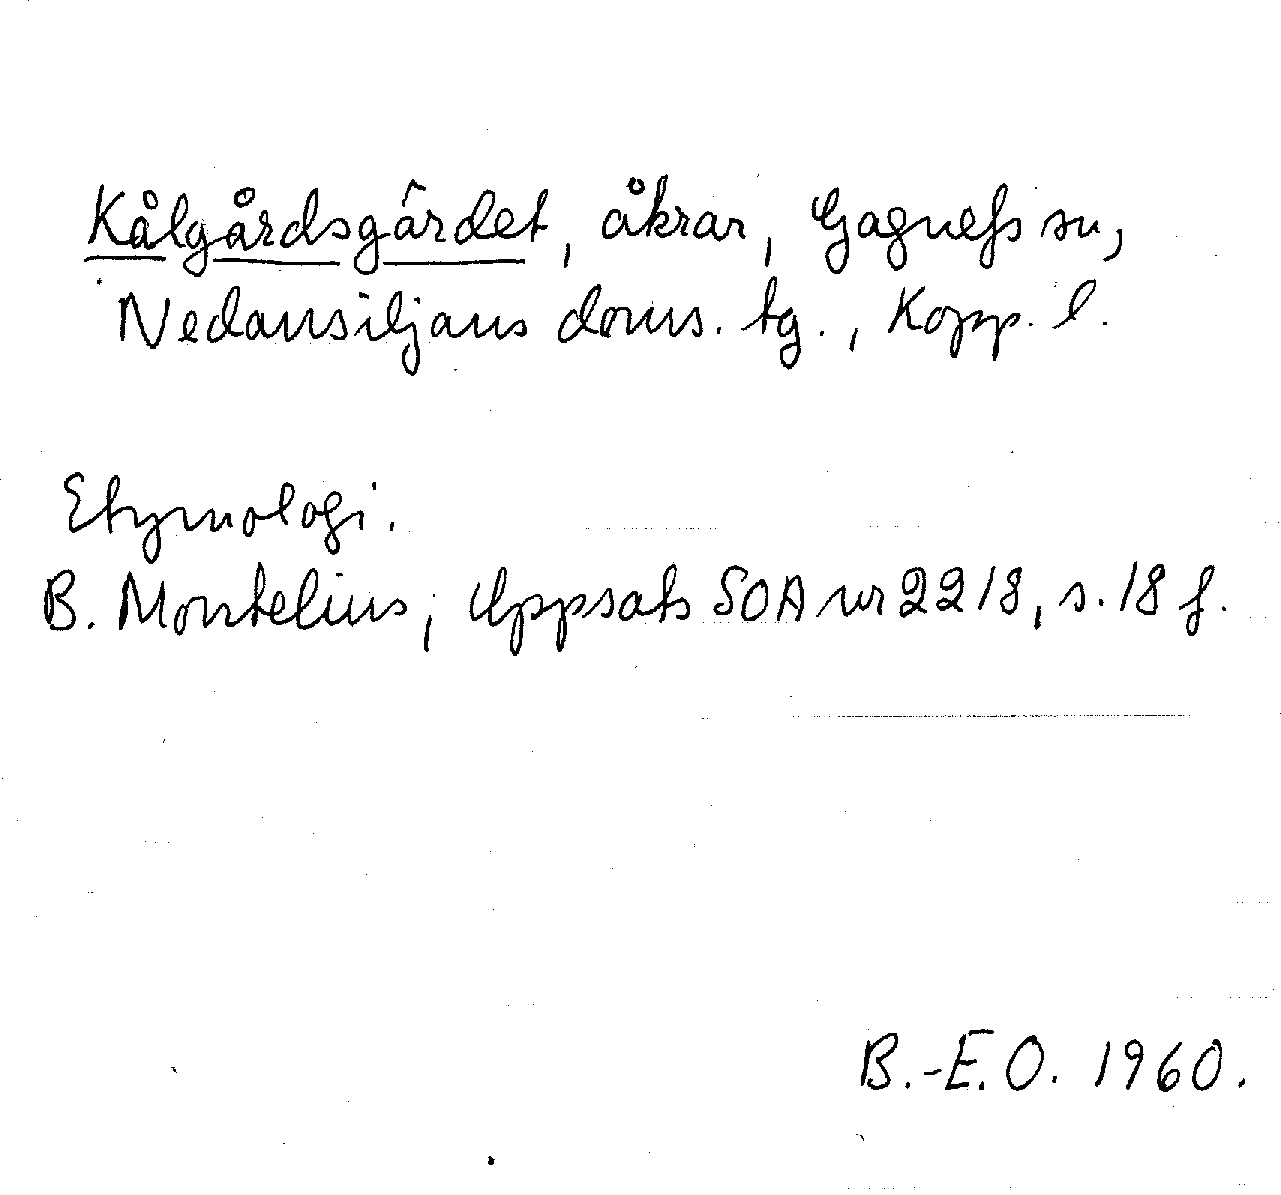 Kålgårdsgärdet, åkrar, Gagnefs sn,
Nedansiljans doms. tg., Kopp. l.
Etymologi.
B. Montelius, Uppsats SOA nr 2218, s. 18 f.
B.-E.O. 1960.